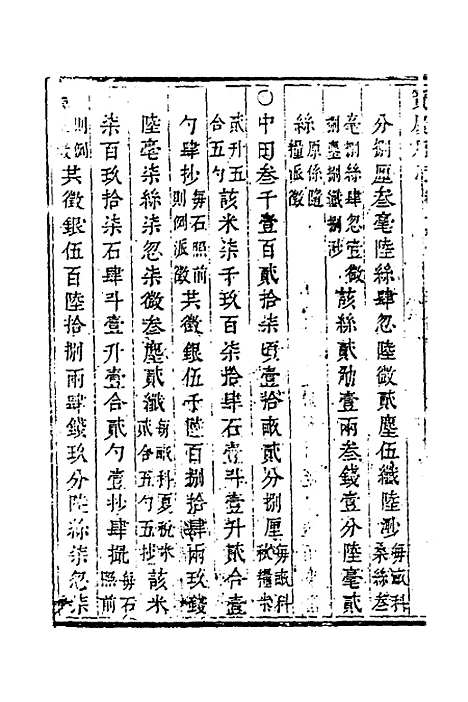 分捌厘叁毫陸絲肆忽陸微貳塵伍纖陸渺每畝科桑絲叁
毫捌絲肆忽壹微捌塵捌纖捌渺該絲貳觔壹兩叁錢壹分陸毫貳
絲原係隨糧派徵
○中田叁千壹百貳拾柒頃壹拾畝貳分捌厘每畝科秋糧米
貳升五合五勺該米柒千玖百柒拾肆石壹斗壹升貳合壹
勺肆抄每石照前則例派徵共徵銀伍千陸百捌拾肆兩玖錢
陸毫柒絲柒忽柒微叁塵貳纖每畝科夏稅米貳合五勺五抄該米
柒百玖拾柒石肆斗壹升壹合貳勺壹抄肆撮每石照前
則例派徵共徵銀伍百陸拾捌兩肆錢玖分陸絲柒忽柒